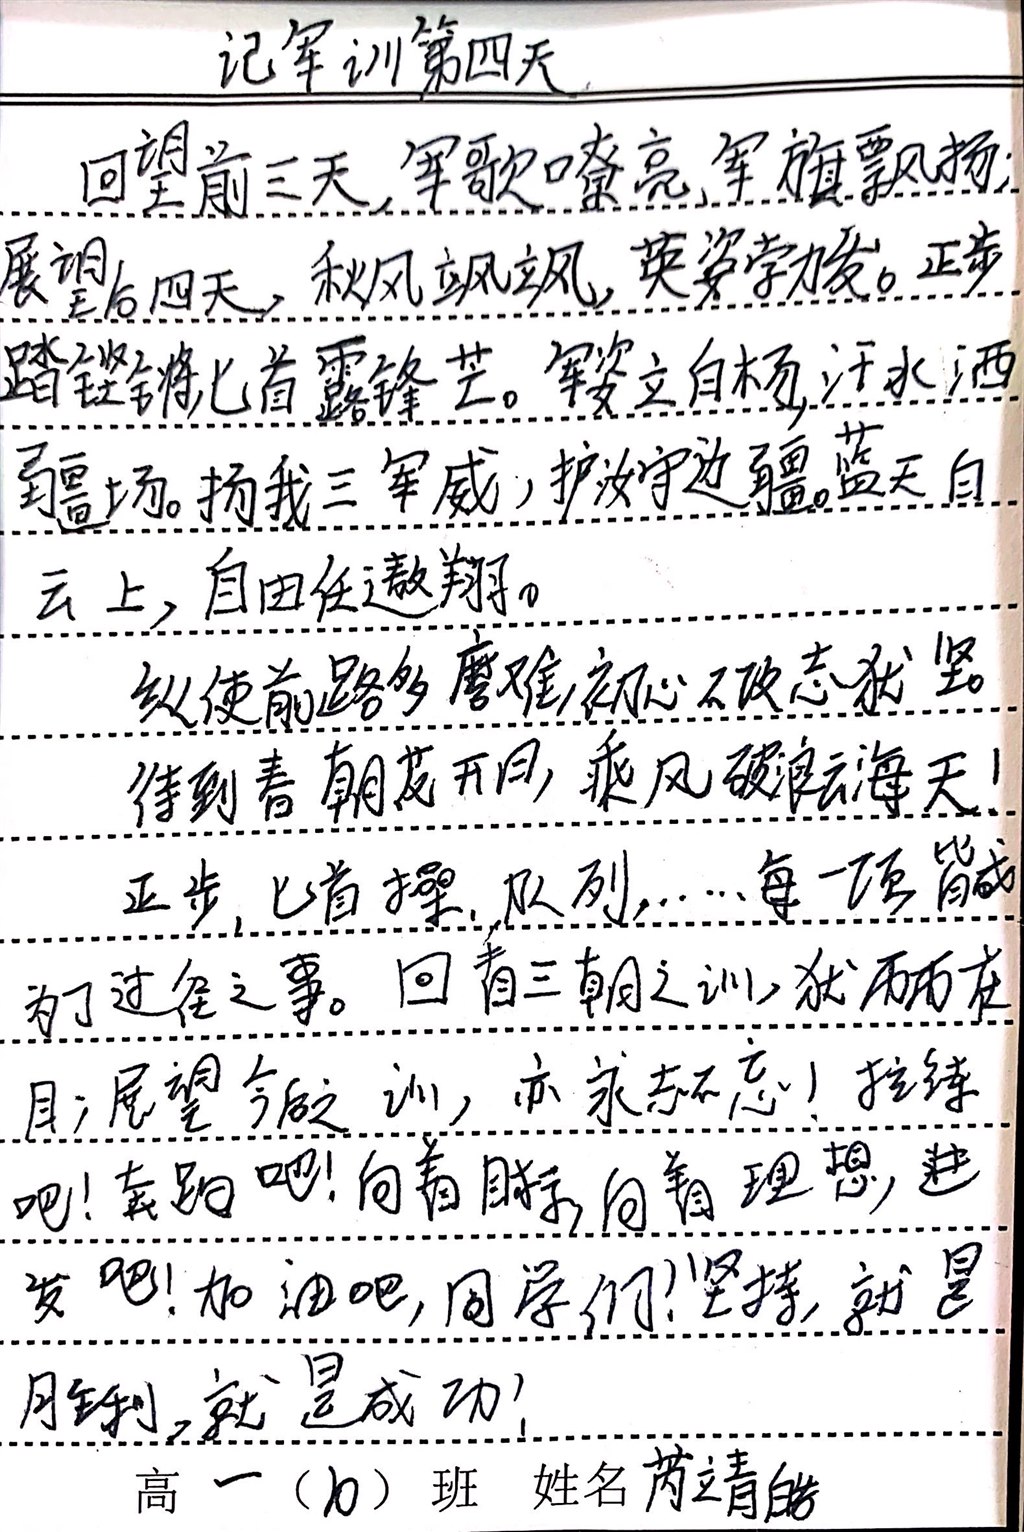 记军训第四天
回望前三天,军歌嘹亮,军旗飘扬;
展望后四天,秋风飒飒,英姿勃发。正步
踏铿锵,匕首露锋芒。军姿立白杨,汗水洒
疆场。扬我三军威,护汝守边疆。蓝天白
云上,自由任遨翔。
纵使前路多磨难,初心不改志犹坚。
待到春朝花开日,乘风破浪云海天!
正步,匕首操,队列,……每一项皆成
为了过径之事。回看三朝之训,犹历历在
目;展望今后之训,亦永志不忘!拉练
吧!奔跑吧!向着目标,向着理想,进
发吧!加油吧,同学们!坚持,就是
胜利,就是成功!
高一(10)班 姓名芮立青皓